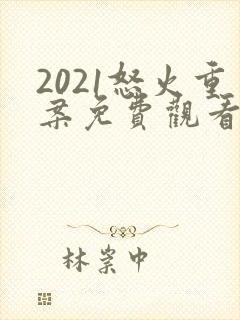 2021怒火重
案免費觀看
林崇中